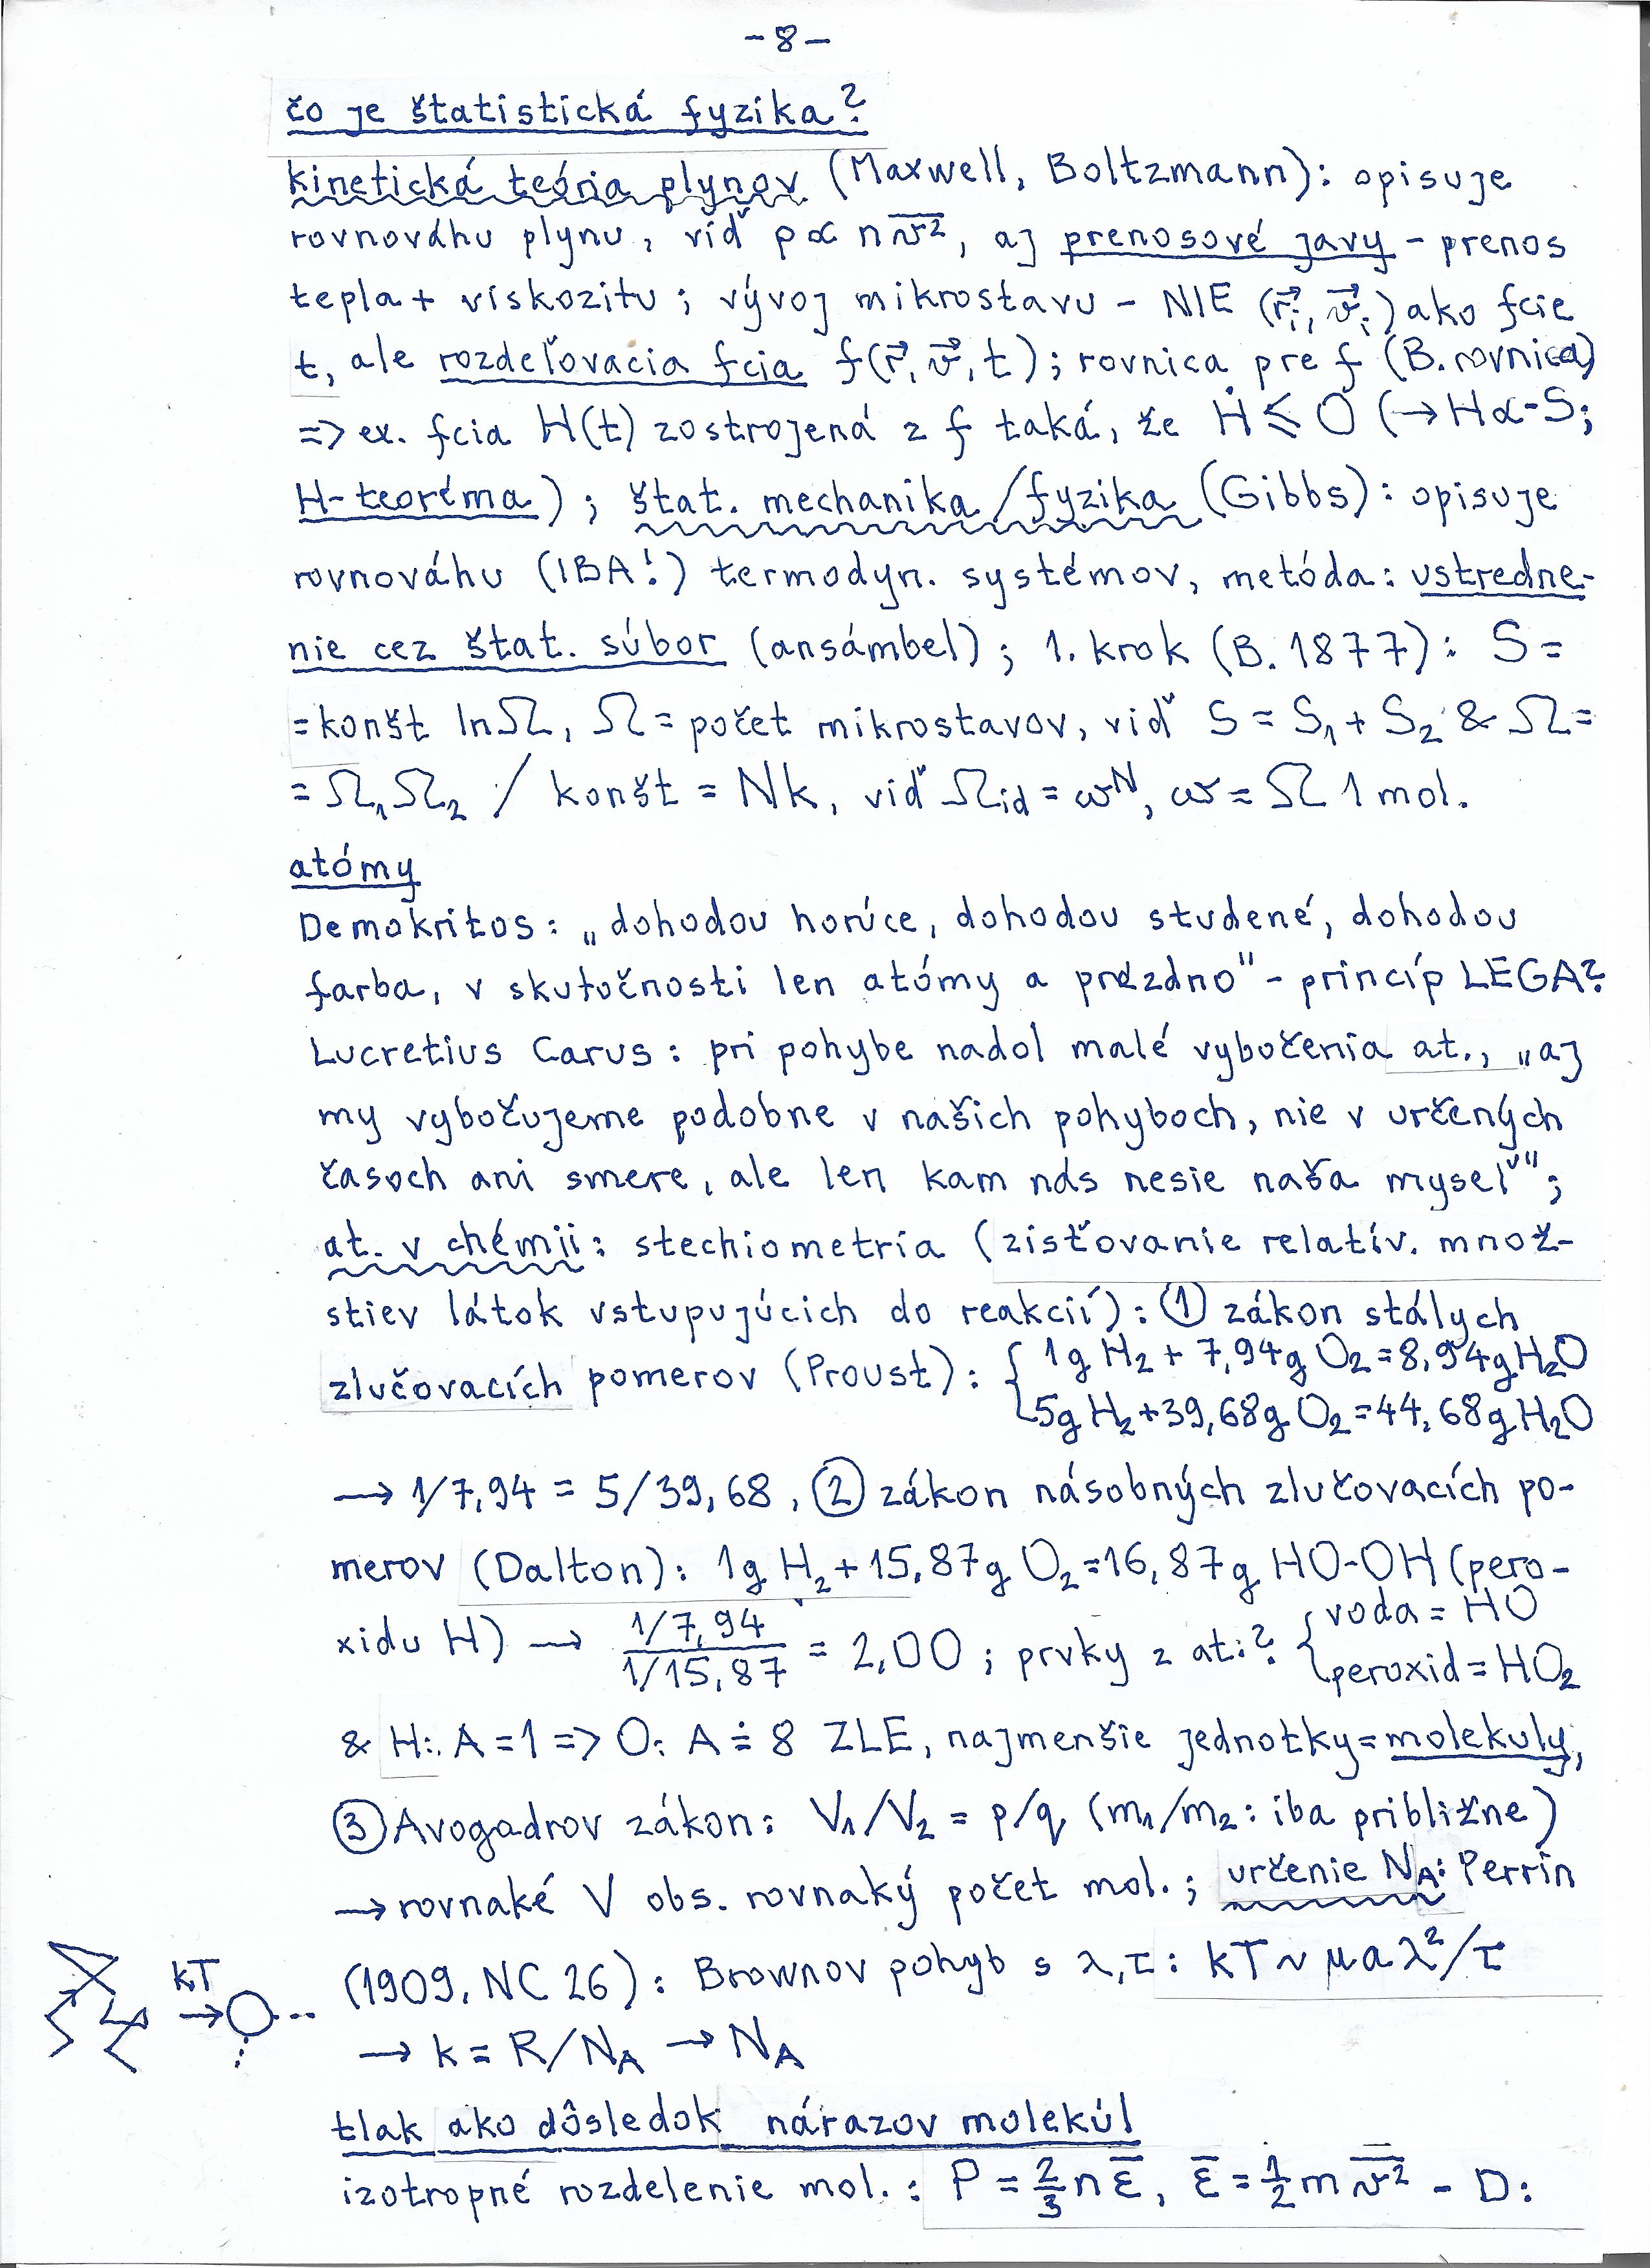 -8-
čo je štatistická fyzika?
kinetická teória plynov (Maxwell, Boltzmann): opisuje
rovnováhu plynu, viď p ∝ n v̅²̅, aj prenosové javy - prenos
tepla + viskozitu; vývoj mikrostavu - NIE (r⃗ᵢ, v⃗ᵢ) ako fcie
t, ale rozdeľovacia fcia f(r⃗, v⃗, t); rovnica pre f (B. rovnica)
=> ex. fcia H(t) zostrojená z f taká, že Ḣ ≤ 0 (→ H ∝ -S;
H-teoréma); štat. mechanika/fyzika (Gibbs): opisuje
rovnováhu (IBA!) termodyn. systémov, metóda: ustredne-
nie cez štat. súbor (ansámbel); 1. krok (B. 1877): S =
= konšt lnΩ, Ω = počet mikrostavov, viď S = S₁ + S₂ & Ω =
= Ω₁Ω₂ / konšt = Nk, viď Ωid = ωᴺ, ω = Ω 1 mol.
atómy
Demokritos: „dohodou horúce, dohodou studené, dohodou
farba, v skutočnosti len atómy a prázdno" - princíp LEGA?
Lucretius Carus: pri pohybe nadol malé vybočenia at., „aj
my vybočujeme podobne v našich pohyboch, nie v určených
časoch ani smere, ale len kam nás nesie naša myseľ";
at. v chémii: stechiometria (zisťovanie relatív. množ-
stiev látok vstupujúcich do reakcií): ① zákon stálych
zlučovacích pomerov (Proust): { 1g H₂ + 7,94g O₂ = 8,94g H₂O
5g H₂ + 39,68g O₂ = 44,68g H₂O
→ 1/7,94 = 5/39,68, ② zákon násobných zlučovacích po-
merov (Dalton): 1g H₂ + 15,87g O₂ = 16,87g HO-OH (pero-
xidu H) → (1/7,94)/(1/15,87) = 2,00; prvky z at.? { voda = HO
peroxid = HO₂
& H: A = 1 => O: A ≐ 8 ZLE, najmenšie jednotky = molekuly,
③ Avogadrov zákon: V₁/V₂ = p/q (m₁/m₂: iba približne)
→ rovnaké V obs. rovnaký počet mol.; určenie N_A: Perrin
(1909, NC 26): Brownov pohyb s λ, τ: kT ~ μaλ²/τ
kT → ...
→ k = R/N_A → N_A
tlak ako dôsledok nárazov molekúl
izotropné rozdelenie mol.: P = 2/3 n ε̅, ε̅ = 1/2 m v̅²̅ - D: